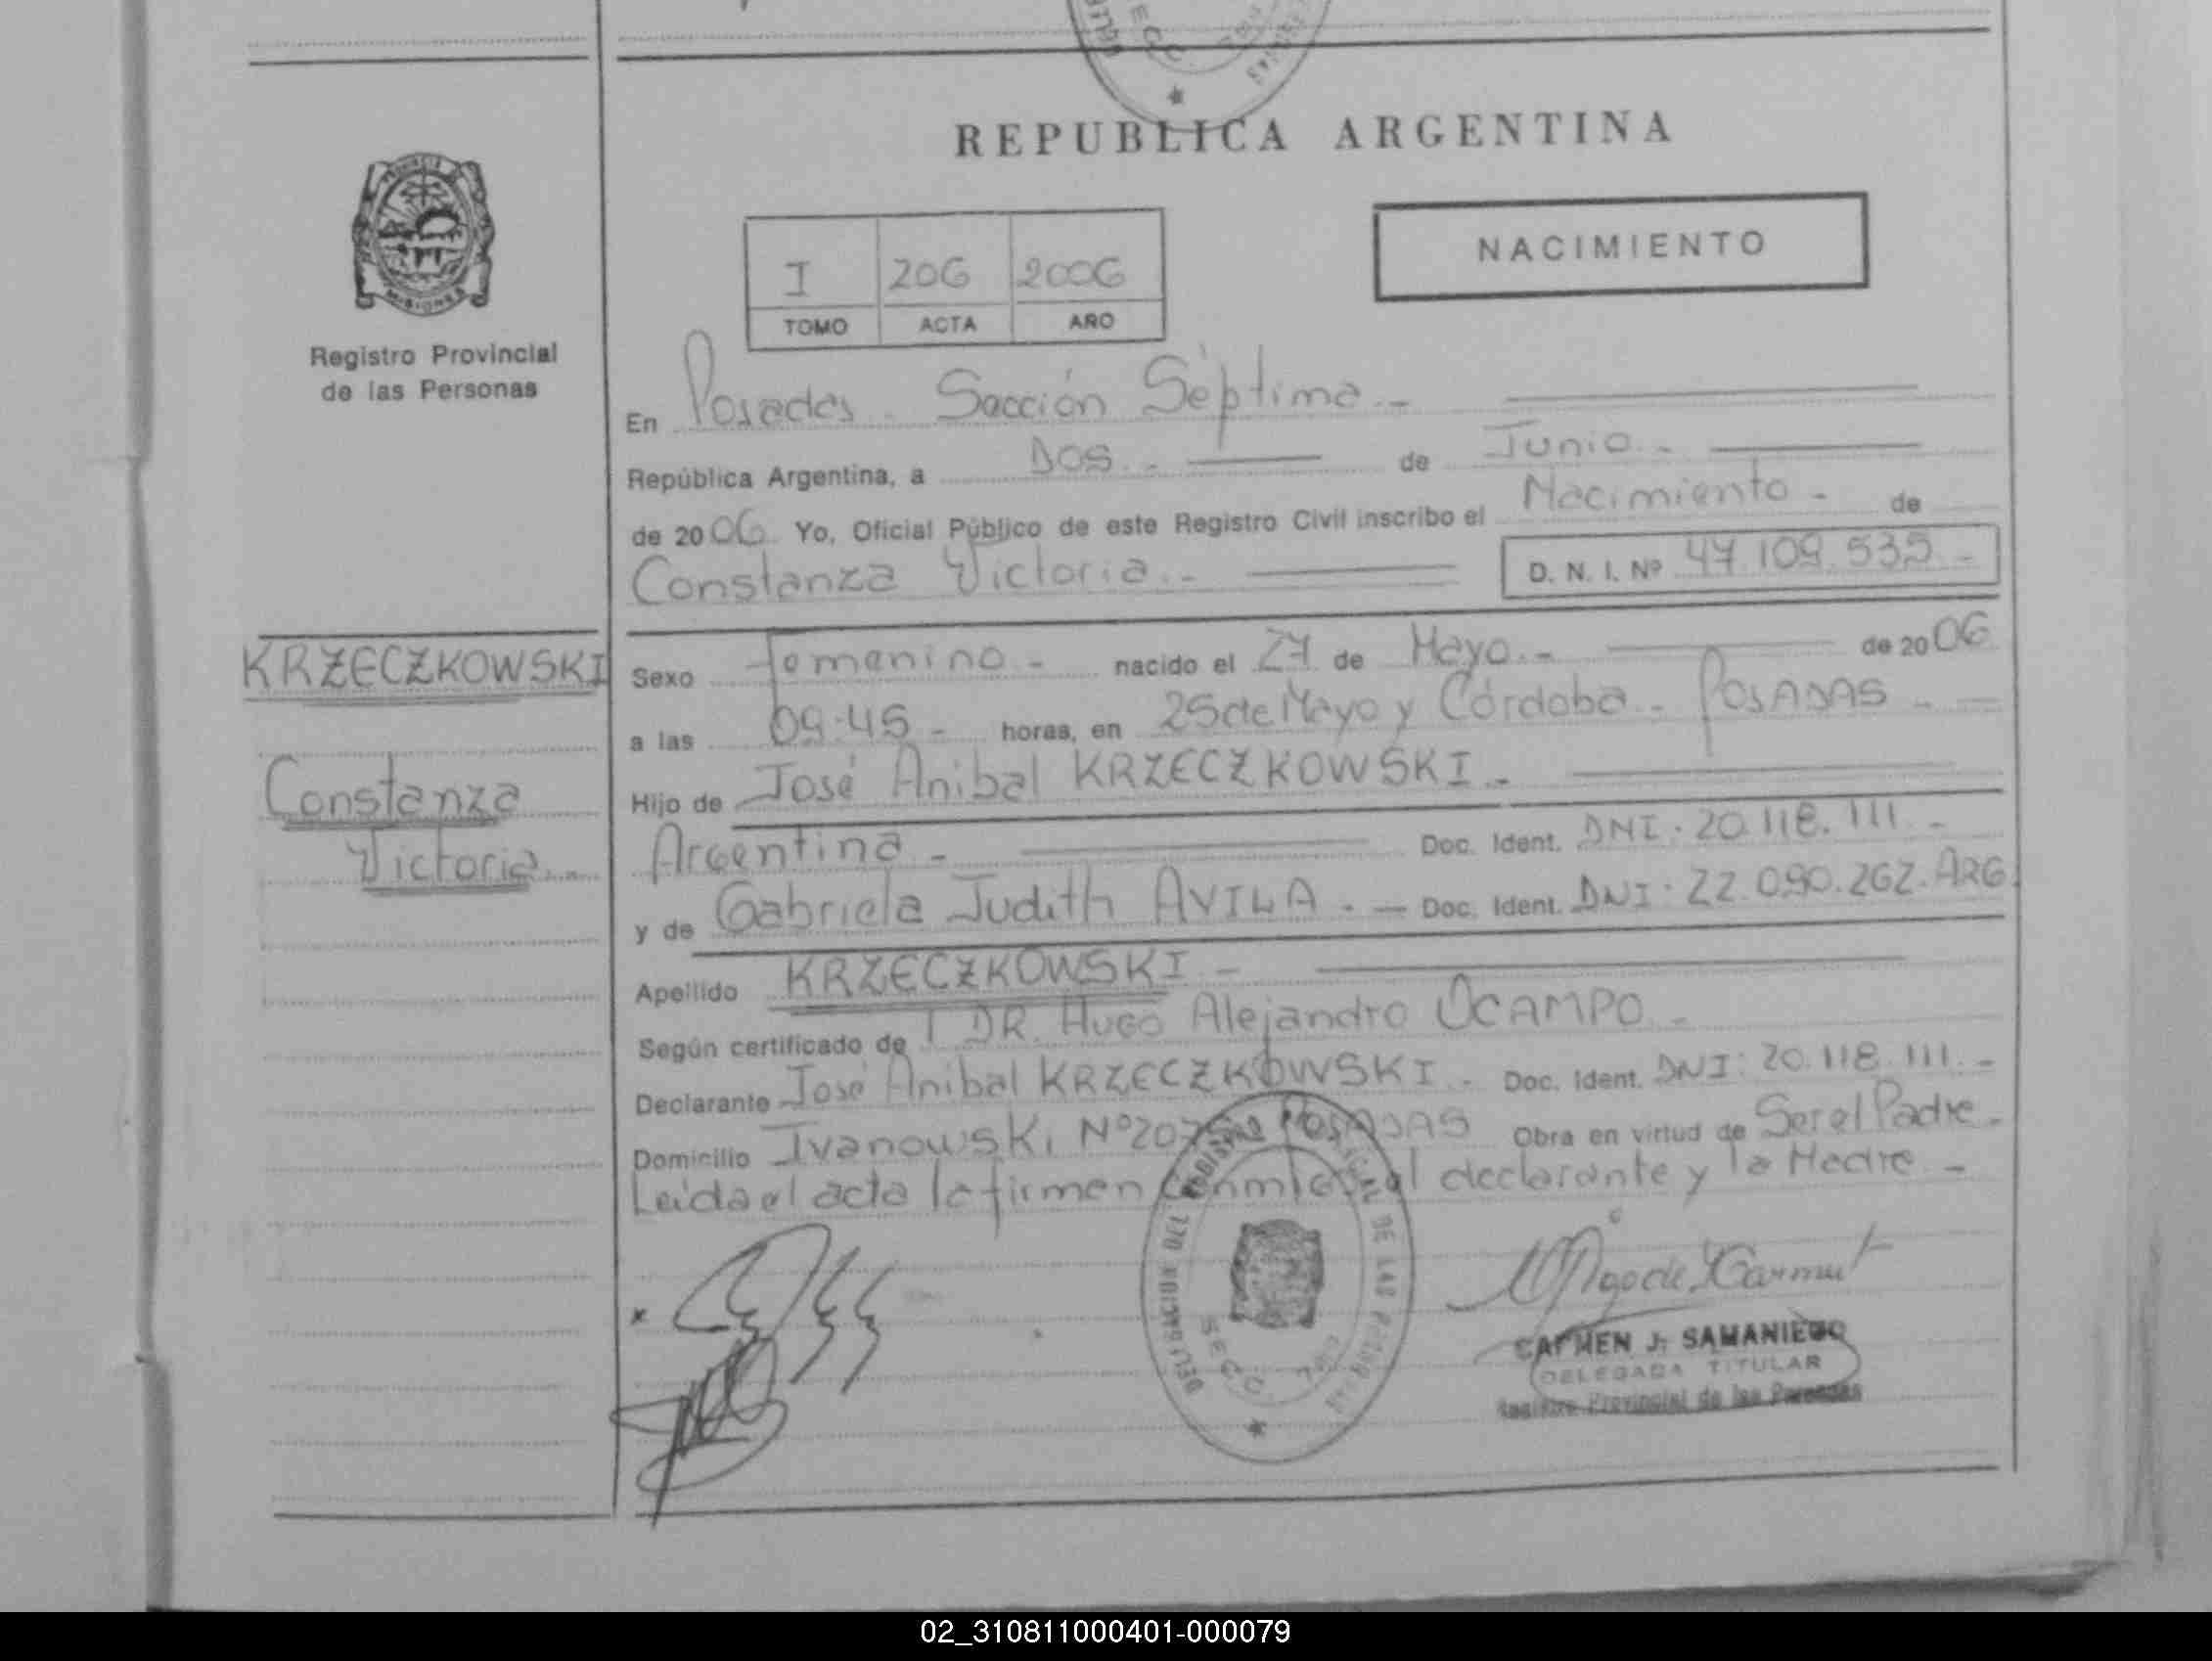 REPUBLICA ARGENTINA
NACIMIENTO
I 206 2006
TOMO ACTA AÑO
MISIONES
Registro Provincial
de las Personas
En Posadas - Sección Séptima.-
República Argentina, a DOS.- de Junio.-
de 2006 Yo, Oficial Público de este Registro Civil inscribo el Nacimiento - de
Constanza Victoria.- D. N. I. Nº 47.109.535 -
KRZECZKOWSKI
Constanza
Victoria.-
Sexo femenino - nacido el 27 de Mayo.- de 2006
a las 09:45 - horas, en 25 de Mayo y Córdoba - POSADAS -
Hijo de José Anibal KRZECZKOWSKI.-
Argentina - Doc. Ident. DNI: 20.118.111 -
y de Gabriela Judith AVILA.- Doc. Ident. DNI: 22.090.262.ARG
Apellido KRZECZKOWSKI -
Según certificado de DR. Hugo Alejandro OCAMPO -
Declarante José Anibal KRZECZKOWSKI - Doc. Ident. DNI: 20.118.111.-
Domicilio Ivanowski Nº POSADAS Obra en virtud de Ser el Padre -
Leida el acta la firman conmigo el declarante y la Madre -
DELEGACION DEL REGISTRO PROVINCIAL DE LAS PERSONAS
SECC.
CARMEN J. SAMANIEGO
DELEGADA TITULAR
Registro Provincial de las Personas
02_310811000401-000079